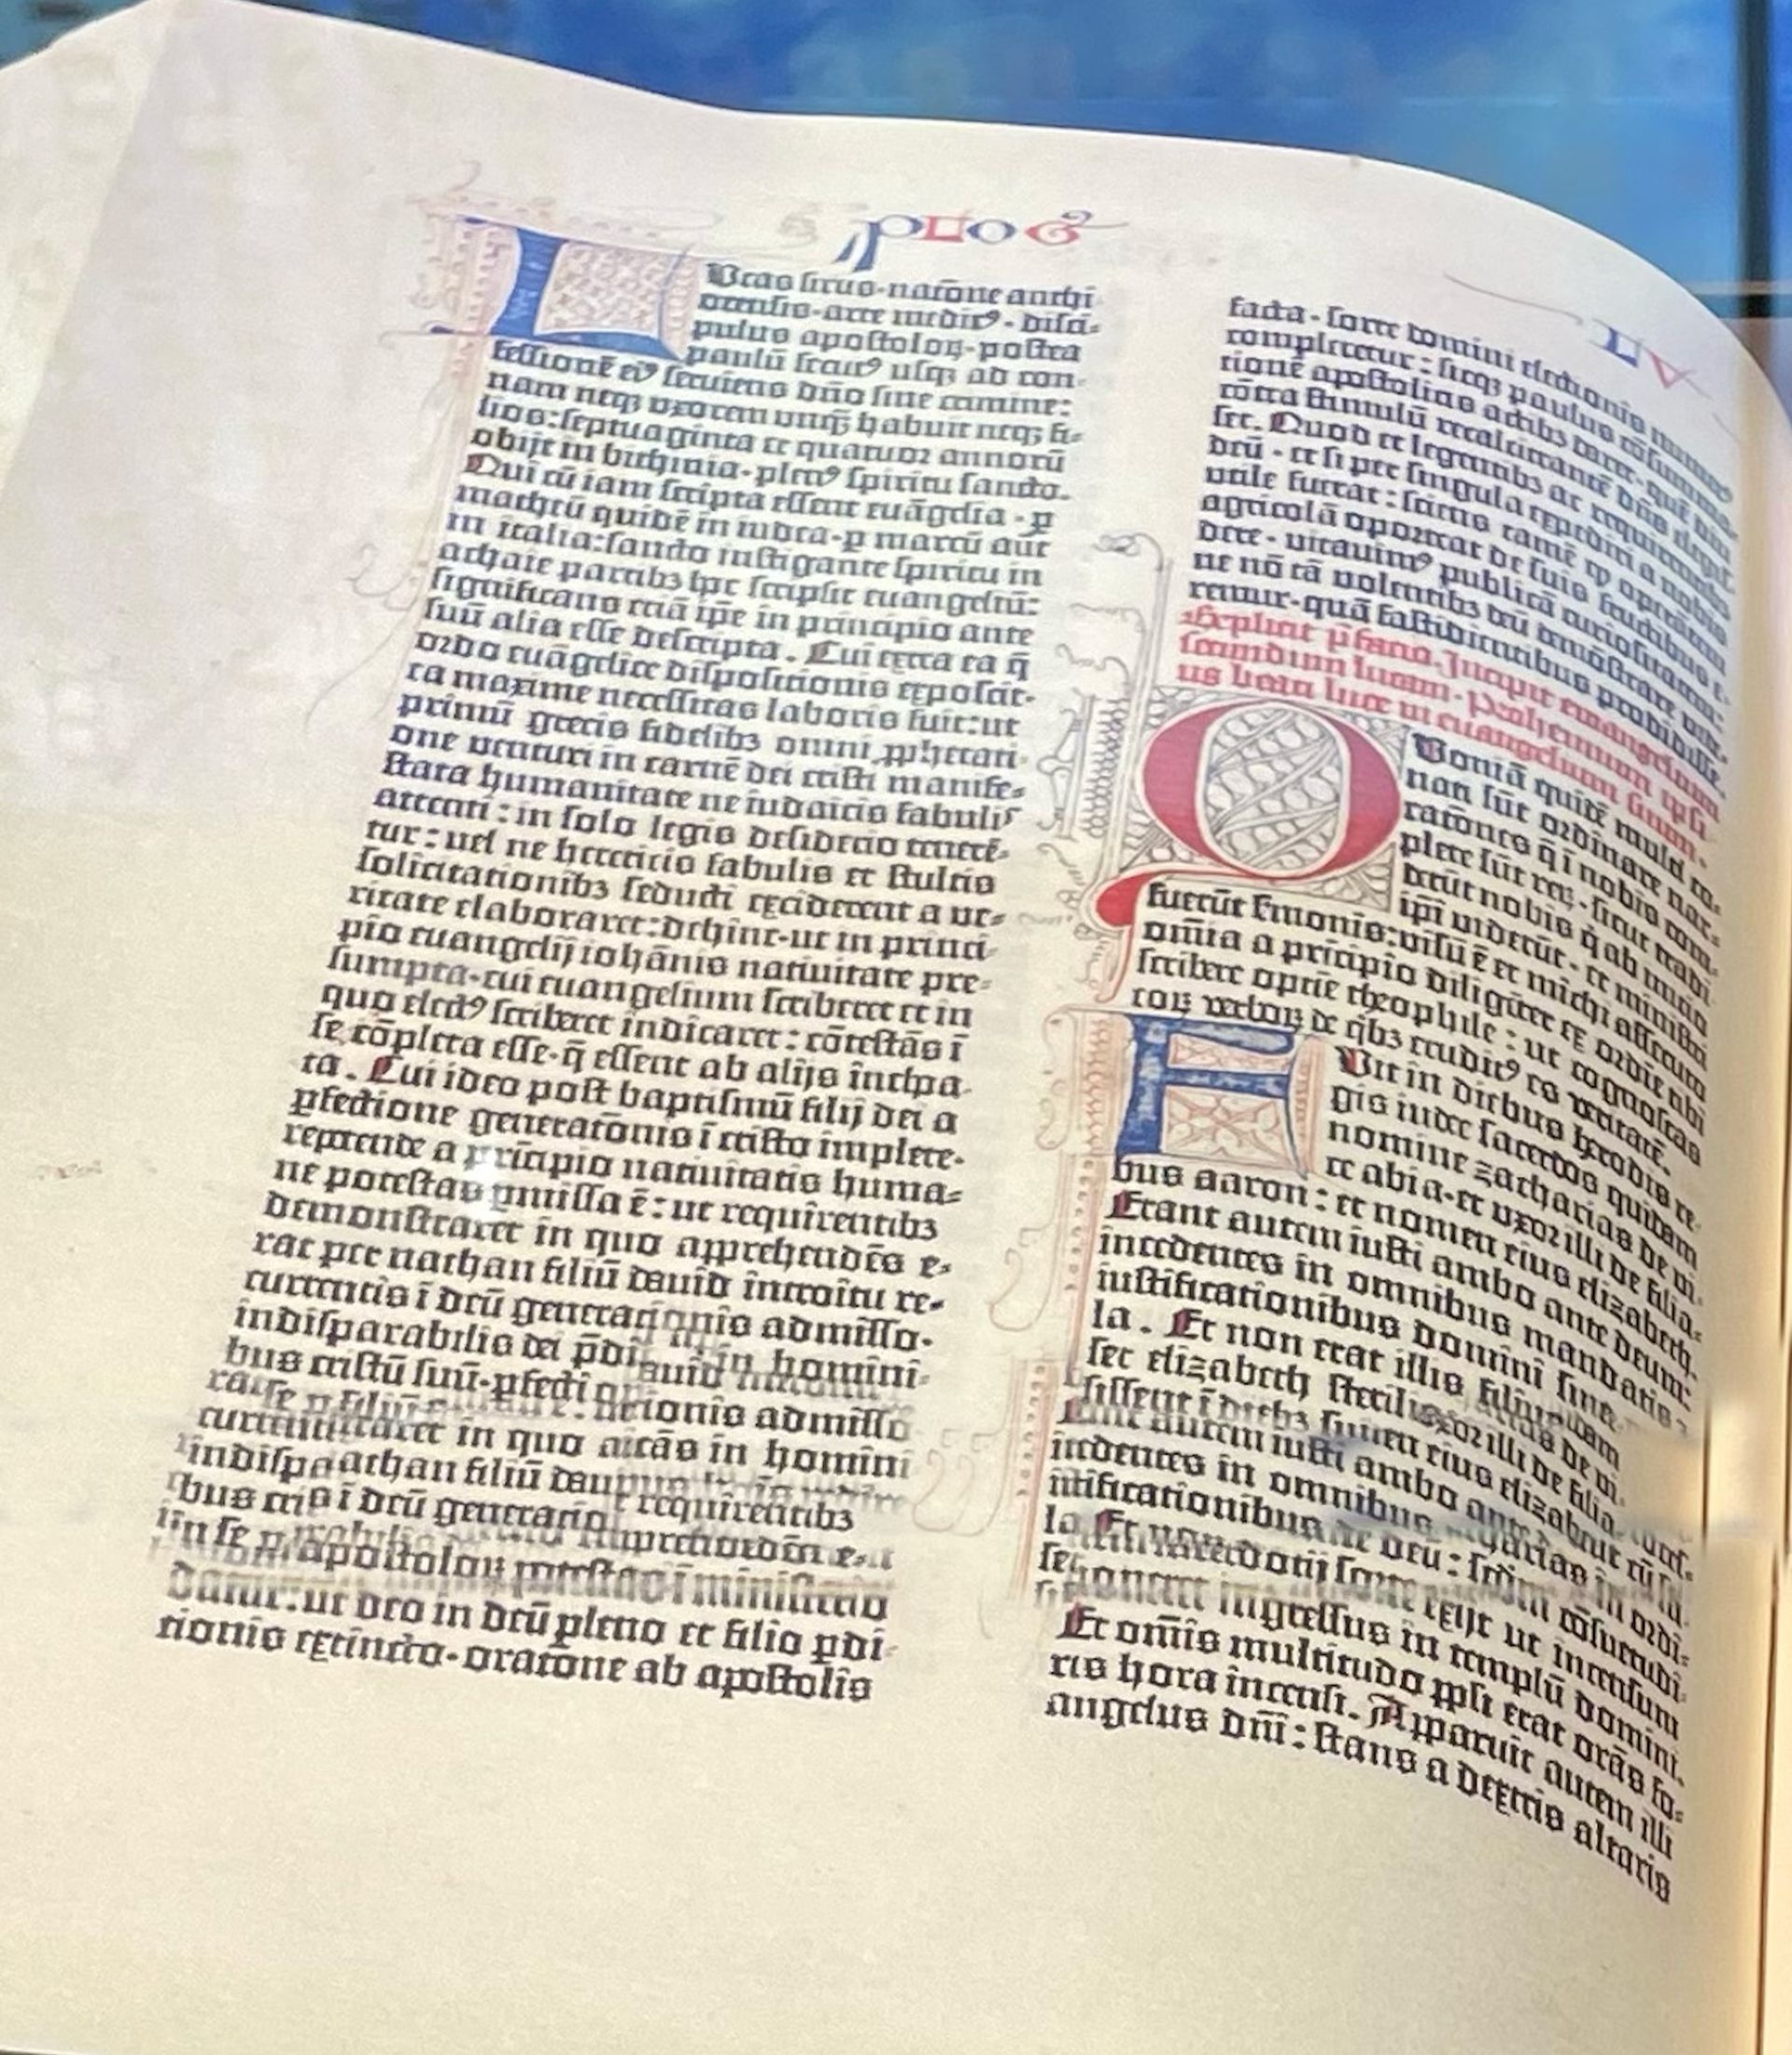 plog
LV
Lucas sirus·natōne anthi
ocensis·arte medicꝰ·disci-
pulus apostoloꝝ·postea
paulū secutꝰ usqꝫ ad con-
fessionē eiꝰ serviens dño sine crimine:
nam neqꝫ uxorem unqꝫ habuit neqꝫ fi-
lios:septuaginta et quatuor annorū
obijt in bithinia·plenꝰ spiritu sancto.
Qui cū iam scripta essent euāgelia·ꝑ
matheū quidē in iudea·ꝑ marcū aūt
in italia:sancto instigante spiritu in
achaie partibꝫ hoc scripsit euangeliū:
significans etiā ip̄e in principio ante
suū alia esse descripta. Cui extra ea q̄
ordo euāgelice dispositionis exposcit·
ea maxime necessitas laboris fuit:ut
primū grecis fidelibꝫ omni ꝓphetati-
one venturi in carnē dei cristi manife-
stata humanitate ne iudaicis fabulis
attenti: in solo legis desiderio tenerē-
tur: uel ne hereticis fabulis et stultis
solicitationibꝫ seducti exciderent a ve-
ritate elaboraret:dehinc·ut in princi-
pio euangelij iohānis natiuitate pre-
sumpta·cui euangelium scriberet et in
quo electꝰ scriberet indicaret: cōtestās ī
se cōpleta esse·q̄ essent ab alijs inchoa-
ta. Cui ideo post baptismū filij dei a
ꝑfectione generatōnis ī cristo implete·
repetende a prīcipio natiuitatis huma-
ne potestas ꝑmissa ē: ut requirentibꝫ
demonstraret in quo apprehendēs e-
rat per nathan filiū dauid introitu re-
currentis ī deū generationis admisso·
indisparabilis dei
bus cristū suū·ꝑfecti
in quo
filiū
ī deū
apostoloꝝ potestas ī ministerio
daretur:ut deo in deū pleno et filio ꝑdi-
tionis extincto·oratōne ab apostolis
facta·sorte domini electionis numerꝰ
compleretur: sicqꝫ paulus cōsumma-
tionē apostolicis actibꝫ daret·quē diu
cōtra stimulū recalcitrantē dñs elegis-
set. Quod et legentibꝫ ac requirentibꝫ
deū·et si per singula expediri a nobis
utile fuerat: sciens tamē ꝙ operātem
agricolā oporteat de suis fructibus e-
dere·uitauimꝰ publicā curiositatem:
ne nō tā volentibꝫ deū demōstrare vide-
remur·quā fastidientibus prodidisse.
Explicit p̄fatio. Incipit euangelium
secundum lucam. Prohemium ipsi-
us beati luce in euangelium suum.
Quoniā quidē multi co-
nati sūt ordinare nar-
ratōnes q̄ ī nobis com-
plete sūt reꝝ·sicut tradi-
derūt nobis q̇ ab inicio
ip̄i viderūt·et ministri
fuerūt sermonis:visū ē et michi assecuto
omīa a prīcipio diligēter ex ordīe tibi
scribere optīe theophile: ut cognoscas
eoꝝ verboꝝ de q̇bꝫ eruditꝰ es veritatē.
Fuit in diebus herodis re-
gis iudee sacerdos quidam
nomine zacharias de vi-
ce abia·et uxor illi de filia-
bus aaron: et nomen eius elizabeth.
Erant autem iusti ambo ante deum:
incedentes in omnibus mandatis et
iustificationibus domini sine
la. Et non erat illis filius
set elizabeth sterilis
sissent ī diebꝫ
autem iusti ambo ante
in omnibus
iustificationibus
la. Et non
sorte exijt ut incensum
poneret ingressus in templū domini.
Et om̄is multitudo ppl̄i erat orās fo-
ris hora incensi. Apparuit autem illi
angelus dn̄i: stans a dextris altaris